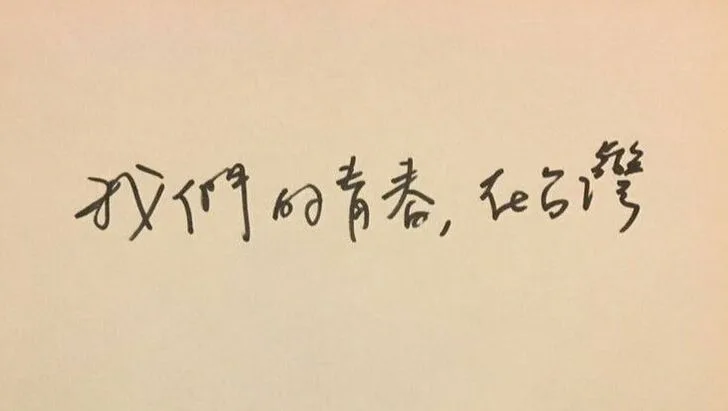 我們的青春,在台灣